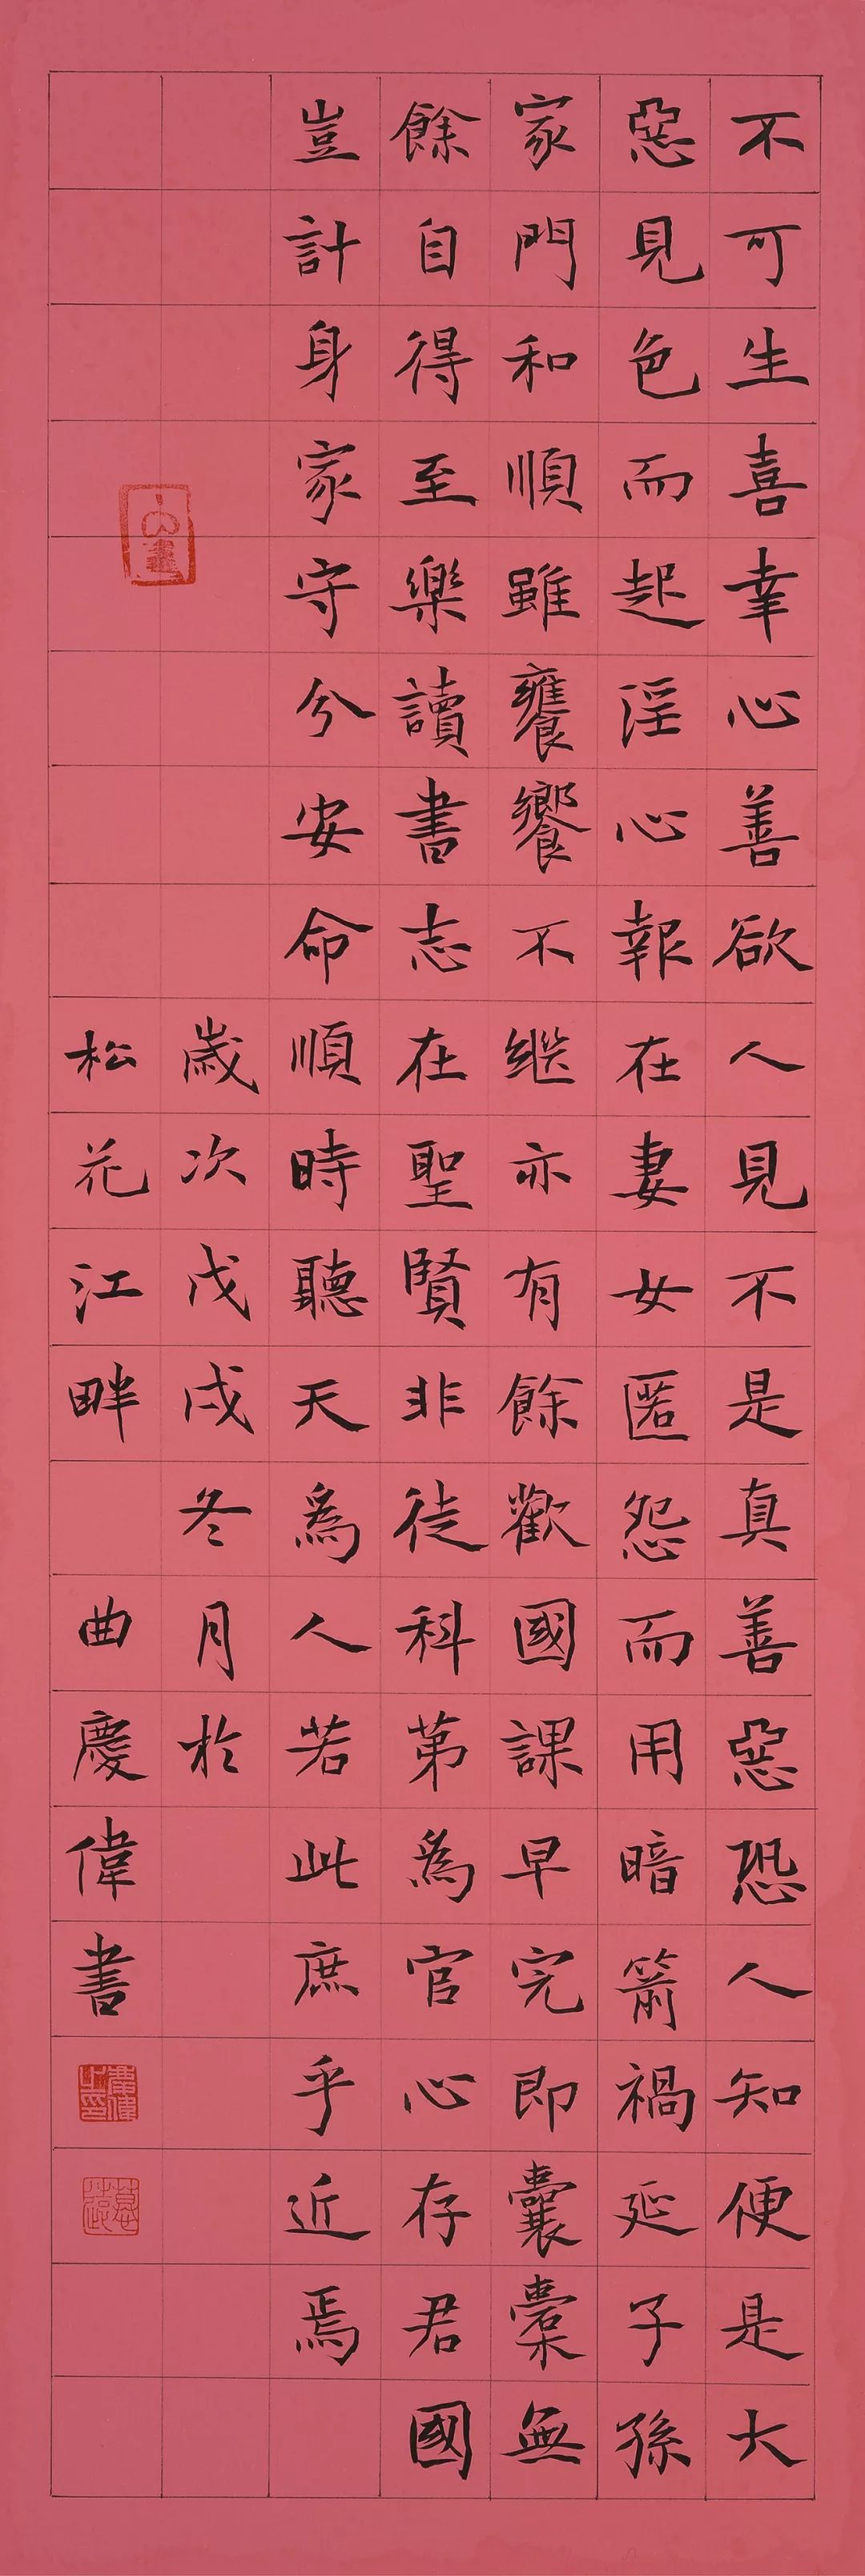 不可生喜幸心善欲人見不是真善惡恐人知便是大
惡見色而起淫心報在妻女匿怨而用暗箭禍延子孫
家門和順雖饔饗不继亦有餘歡國課早完即囊橐無
餘自得至樂讀書志在聖賢非徒科第為官心存君國
豈計身家守分安命順時聽天爲人若此庶乎近焉
歲次戊戌冬月於
松花江畔 曲慶偉書